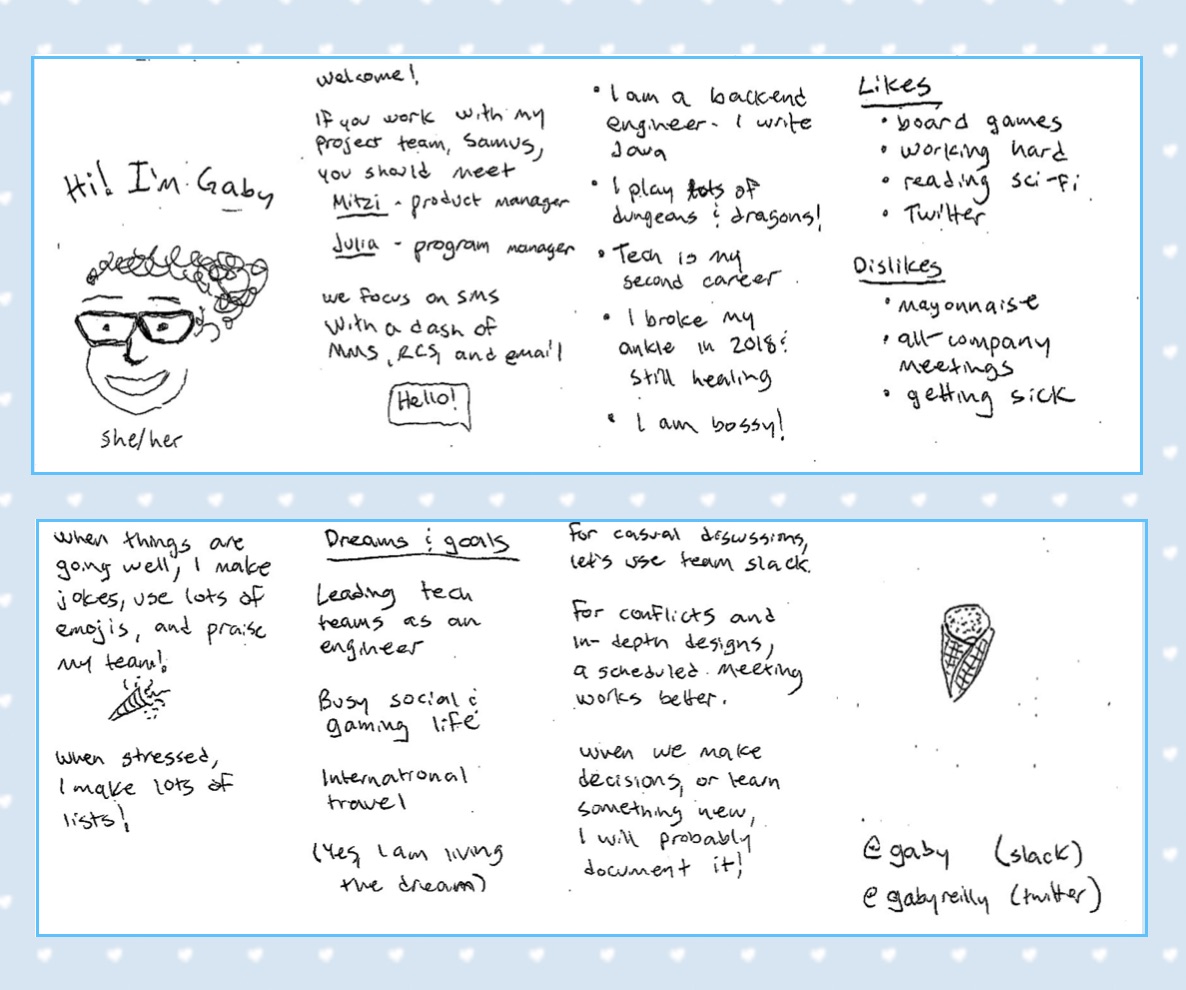 Hi! I'm Gaby
she/her
Welcome!
If you work with my
project team, Samus,
you should meet
Mitzi - product manager
Julia - program manager
we focus on SMS
with a dash of
MMS, RCS, and email
Hello!
• I am a backend
engineer. I write
Java
• I play lots of
dungeons & dragons!
• Tech is my
second career
• I broke my
ankle in 2018 &
still healing
• I am bossy!
Likes
• board games
• working hard
• reading sci-fi
• Twitter
Dislikes
• mayonnaise
• all-company
meetings
• getting sick
when things are
going well, I make
jokes, use lots of
emojis, and praise
my team!
when stressed,
I make lots of
lists!
Dreams & goals
Leading tech
teams as an
engineer
Busy social &
gaming life
International
travel
(Yes, I am living
the dream)
For casual discussions,
let's use team slack.
For conflicts and
in-depth designs,
a scheduled meeting
works better.
when we make
decisions, or learn
something new,
I will probably
document it!
@gaby (slack)
@gabyreilly (twitter)